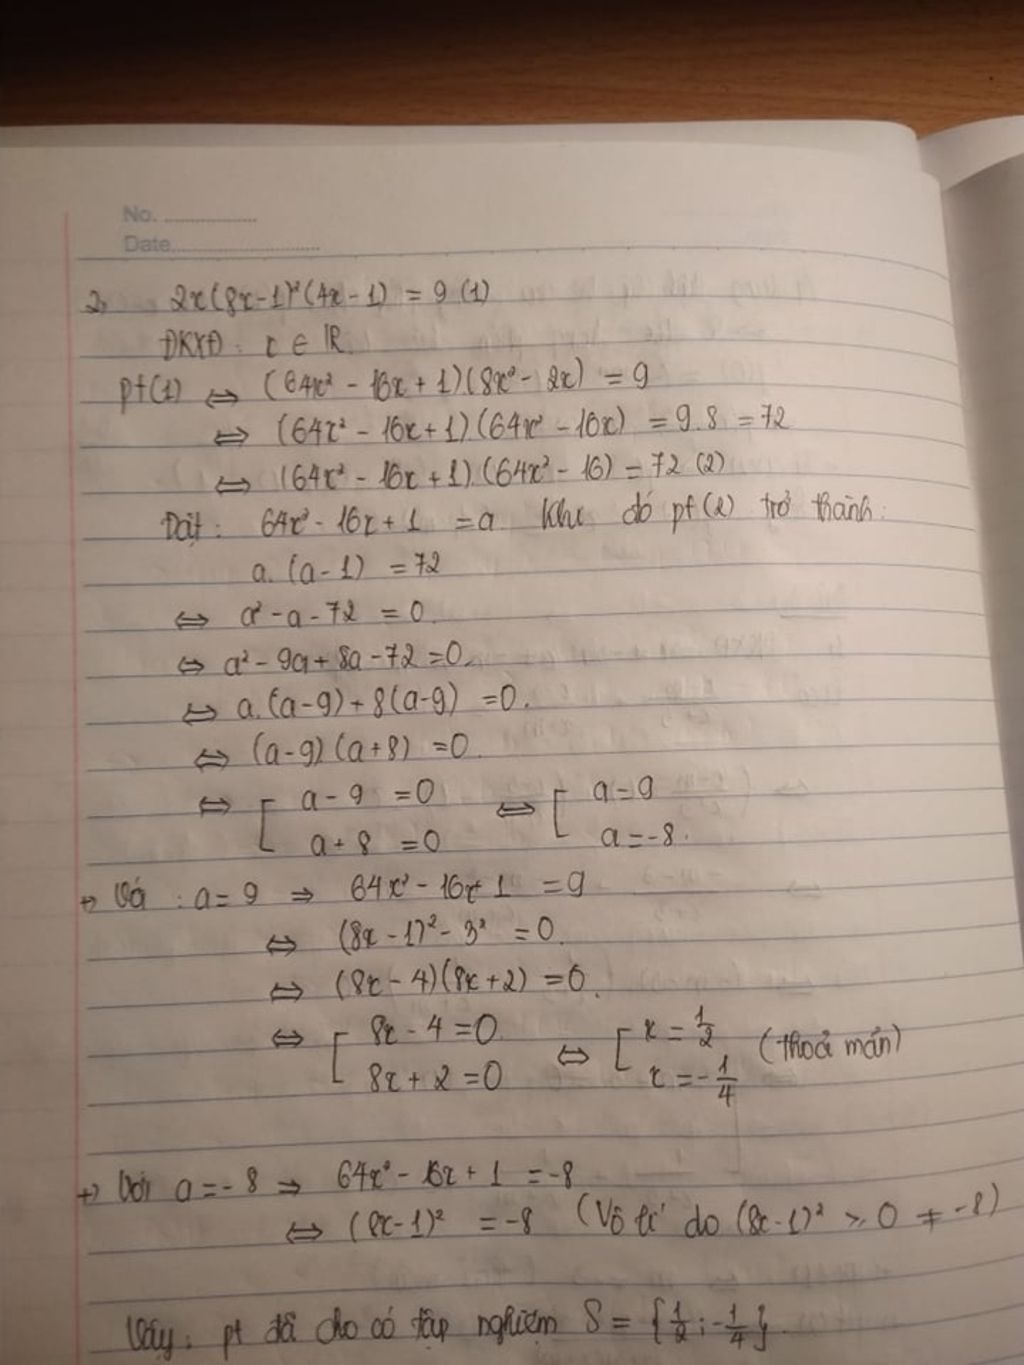 No.
Date
2, 2x(8x-1)²(4x-1) = 9 (1)
ĐKXĐ: x ∈ ℝ.
pt(1) ⇔ (64x² - 16x + 1)(8x² - 2x) = 9
⇔ (64x² - 16x + 1)(64x² - 16x) = 9.8 = 72
⇔ (64x² - 16x + 1).(64x² - 16) = 72 (2)
Đặt: 64x² - 16x + 1 = a Khi đó pt(2) trở thành:
a.(a-1) = 72
⇔ a² - a - 72 = 0.
⇔ a² - 9a + 8a - 72 = 0.
⇔ a.(a-9) + 8(a-9) = 0.
⇔ (a-9)(a+8) = 0.
⇔ [ a - 9 = 0 ⇔ [ a = 9
a + 8 = 0 a = -8.
+) Với : a = 9 ⇒ 64x² - 16x + 1 = 9
⇔ (8x - 1)² - 3² = 0.
⇔ (8x - 4)(8x + 2) = 0.
⇔ [ 8x - 4 = 0 ⇔ [ x = 1/2 (thoả mãn)
8x + 2 = 0 x = -1/4
+) Với a = -8 ⇒ 64x² - 16x + 1 = -8
⇔ (8x-1)² = -8 (Vô lí do (8x-1)² ≥ 0 ≠ -8)
Vậy: pt đã cho có tập nghiệm S = {1/2; -1/4}.